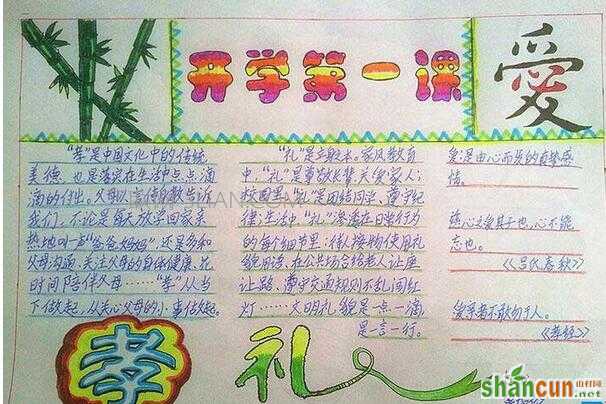 开学第一课
爱
"孝"是中国文化中的传统
美德,也是落实在生活中点点滴
滴的付出。父母以言传身教告诉
我们,不论是每天放学回家亲
热地叫一声"爸爸妈妈",还是多和
父母沟通,关注父母的身体健康,花
时间陪伴父母……"孝"从当
下做起,从关心父母的小事做起。
"礼"是立身之本。家风教育
中,"礼"是尊敬长辈关爱家人;
校园里,"礼"是团结同学、遵守纪
律;生活中,"礼"渗透在日常行为
的每个细节里:待人接物使用礼
貌用语,在公共场合给老人让座
让路,遵守交通规则不乱闯红
灯……文明礼貌是一点一滴,
是一言一行。
爱是由心而发的真挚感
情。
慈心之爱其子也,心不能
忘也。
《吕氏春秋》
爱亲者不敢勿于人。
《孝经》
孝
礼
shancun
山村网
.net